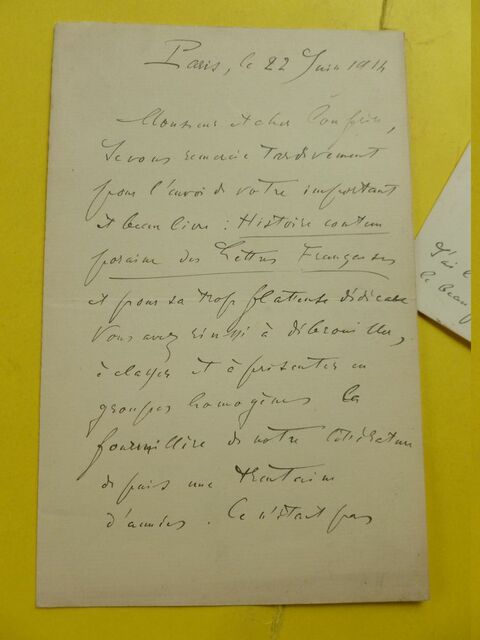 Paris, le 22 Juin 1914
Monsieur et cher Confrère,
Je vous remercie tardivement
pour l'envoi de votre important
et beau livre : Histoire contem
poraine des Lettres Françaises
et pour sa trop flatteuse dédicace
Vous avez réussi à débrouiller,
à classer et à présenter en
groupes homogènes la
fourmillière de notre littérature
depuis une trentaine
d'années. Ce n'étant pas
J'ai l
le beau